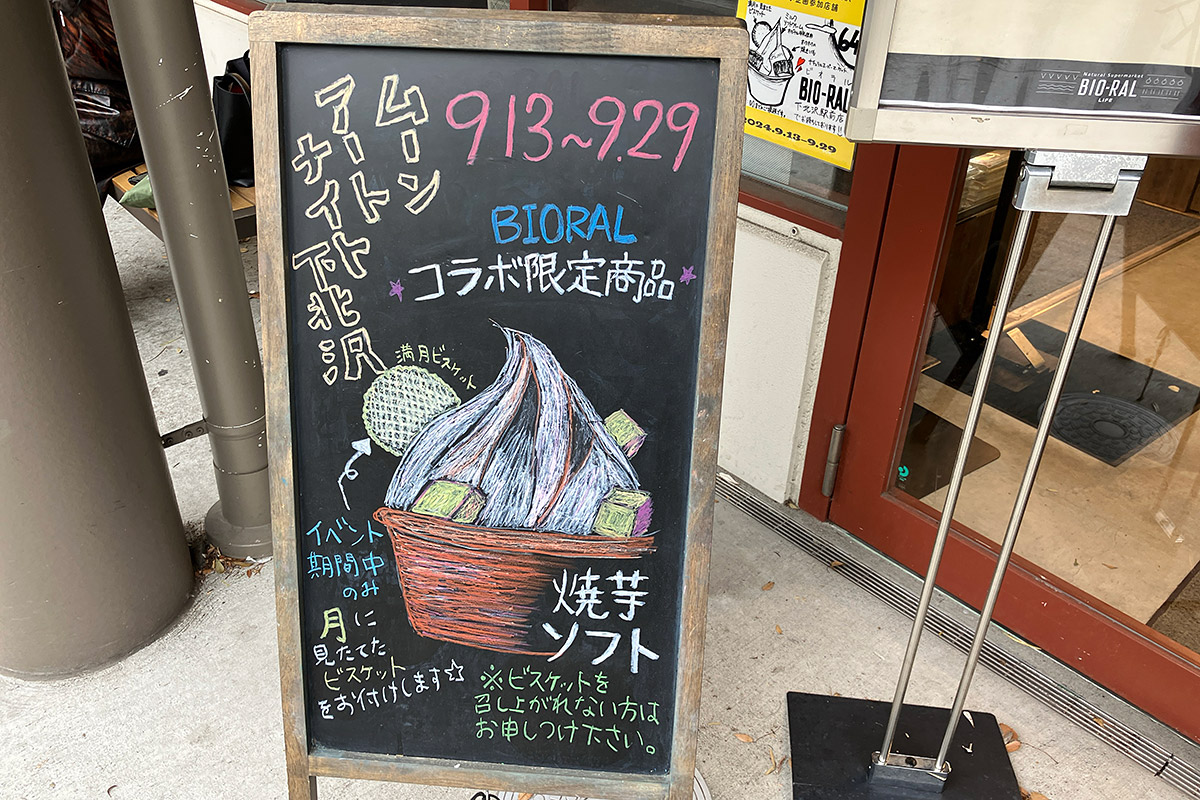 ムーン
アート
ナイト
下北沢
9.13~9.29
BIORAL
コラボ限定商品
満月ビスケット
イベント
期間中
のみ
月に
見たてた
ビスケット
をお付けします☆
焼芋
ソフト
※ビスケットを
召し上がれない方は
お申しつけ下さい。
企画参加店舗
64
ビオラル
BIO-RAL
下北沢駅前店
2024.9.13-9.29
Natural Supermarket
BIO-RAL
LIFE